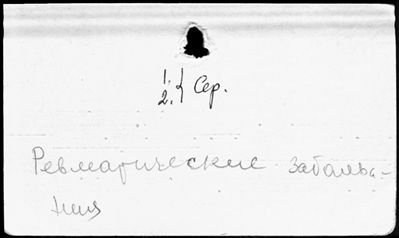 1.
2. } Сер.
Ревматические заболева-
ния